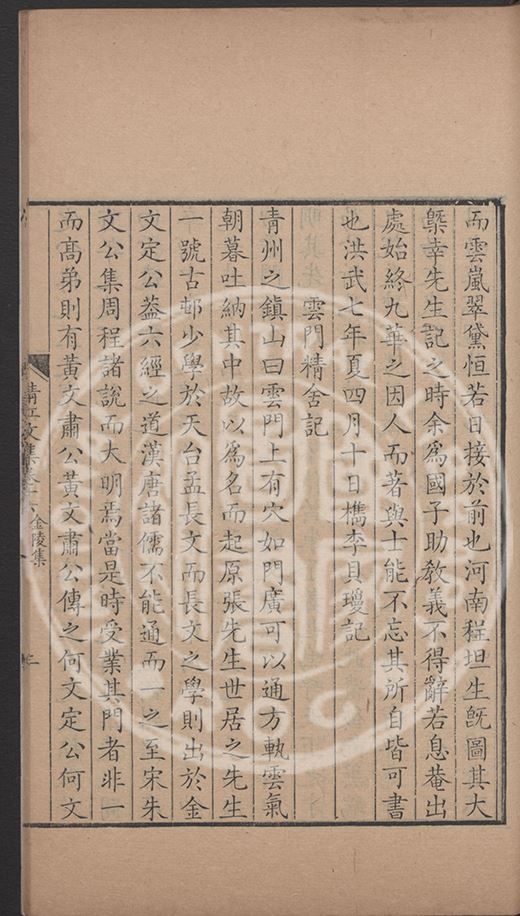 而雲嵐翠黛恒若日接於前也河南程坦生旣圖其大
槩幸先生記之時余為國子助教義不得辭若息菴出
處始終九華之因人而著與士能不忘其所自皆可書
也洪武七年夏四月十日檇李貝瓊記
雲門精舍記
青州之鎮山曰雲門上有穴如門廣可以通方軌雲氣
朝暮吐納其中故以爲名而起原張先生世居之先生
一號古邨少學於天台孟長文而長文之學則出於金
文定公葢六經之道漢唐諸儒不能通而一之至宋朱
文公集周程諸說而大明焉當是時受業其門者非一
而高弟則有黃文肅公黃文肅公傳之何文定公何文
清江文集卷十六 金陵集